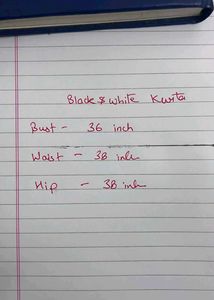 Black & white Kurta
Bust - 36 inch
Waist - 38 inch
Hip - 38 inch